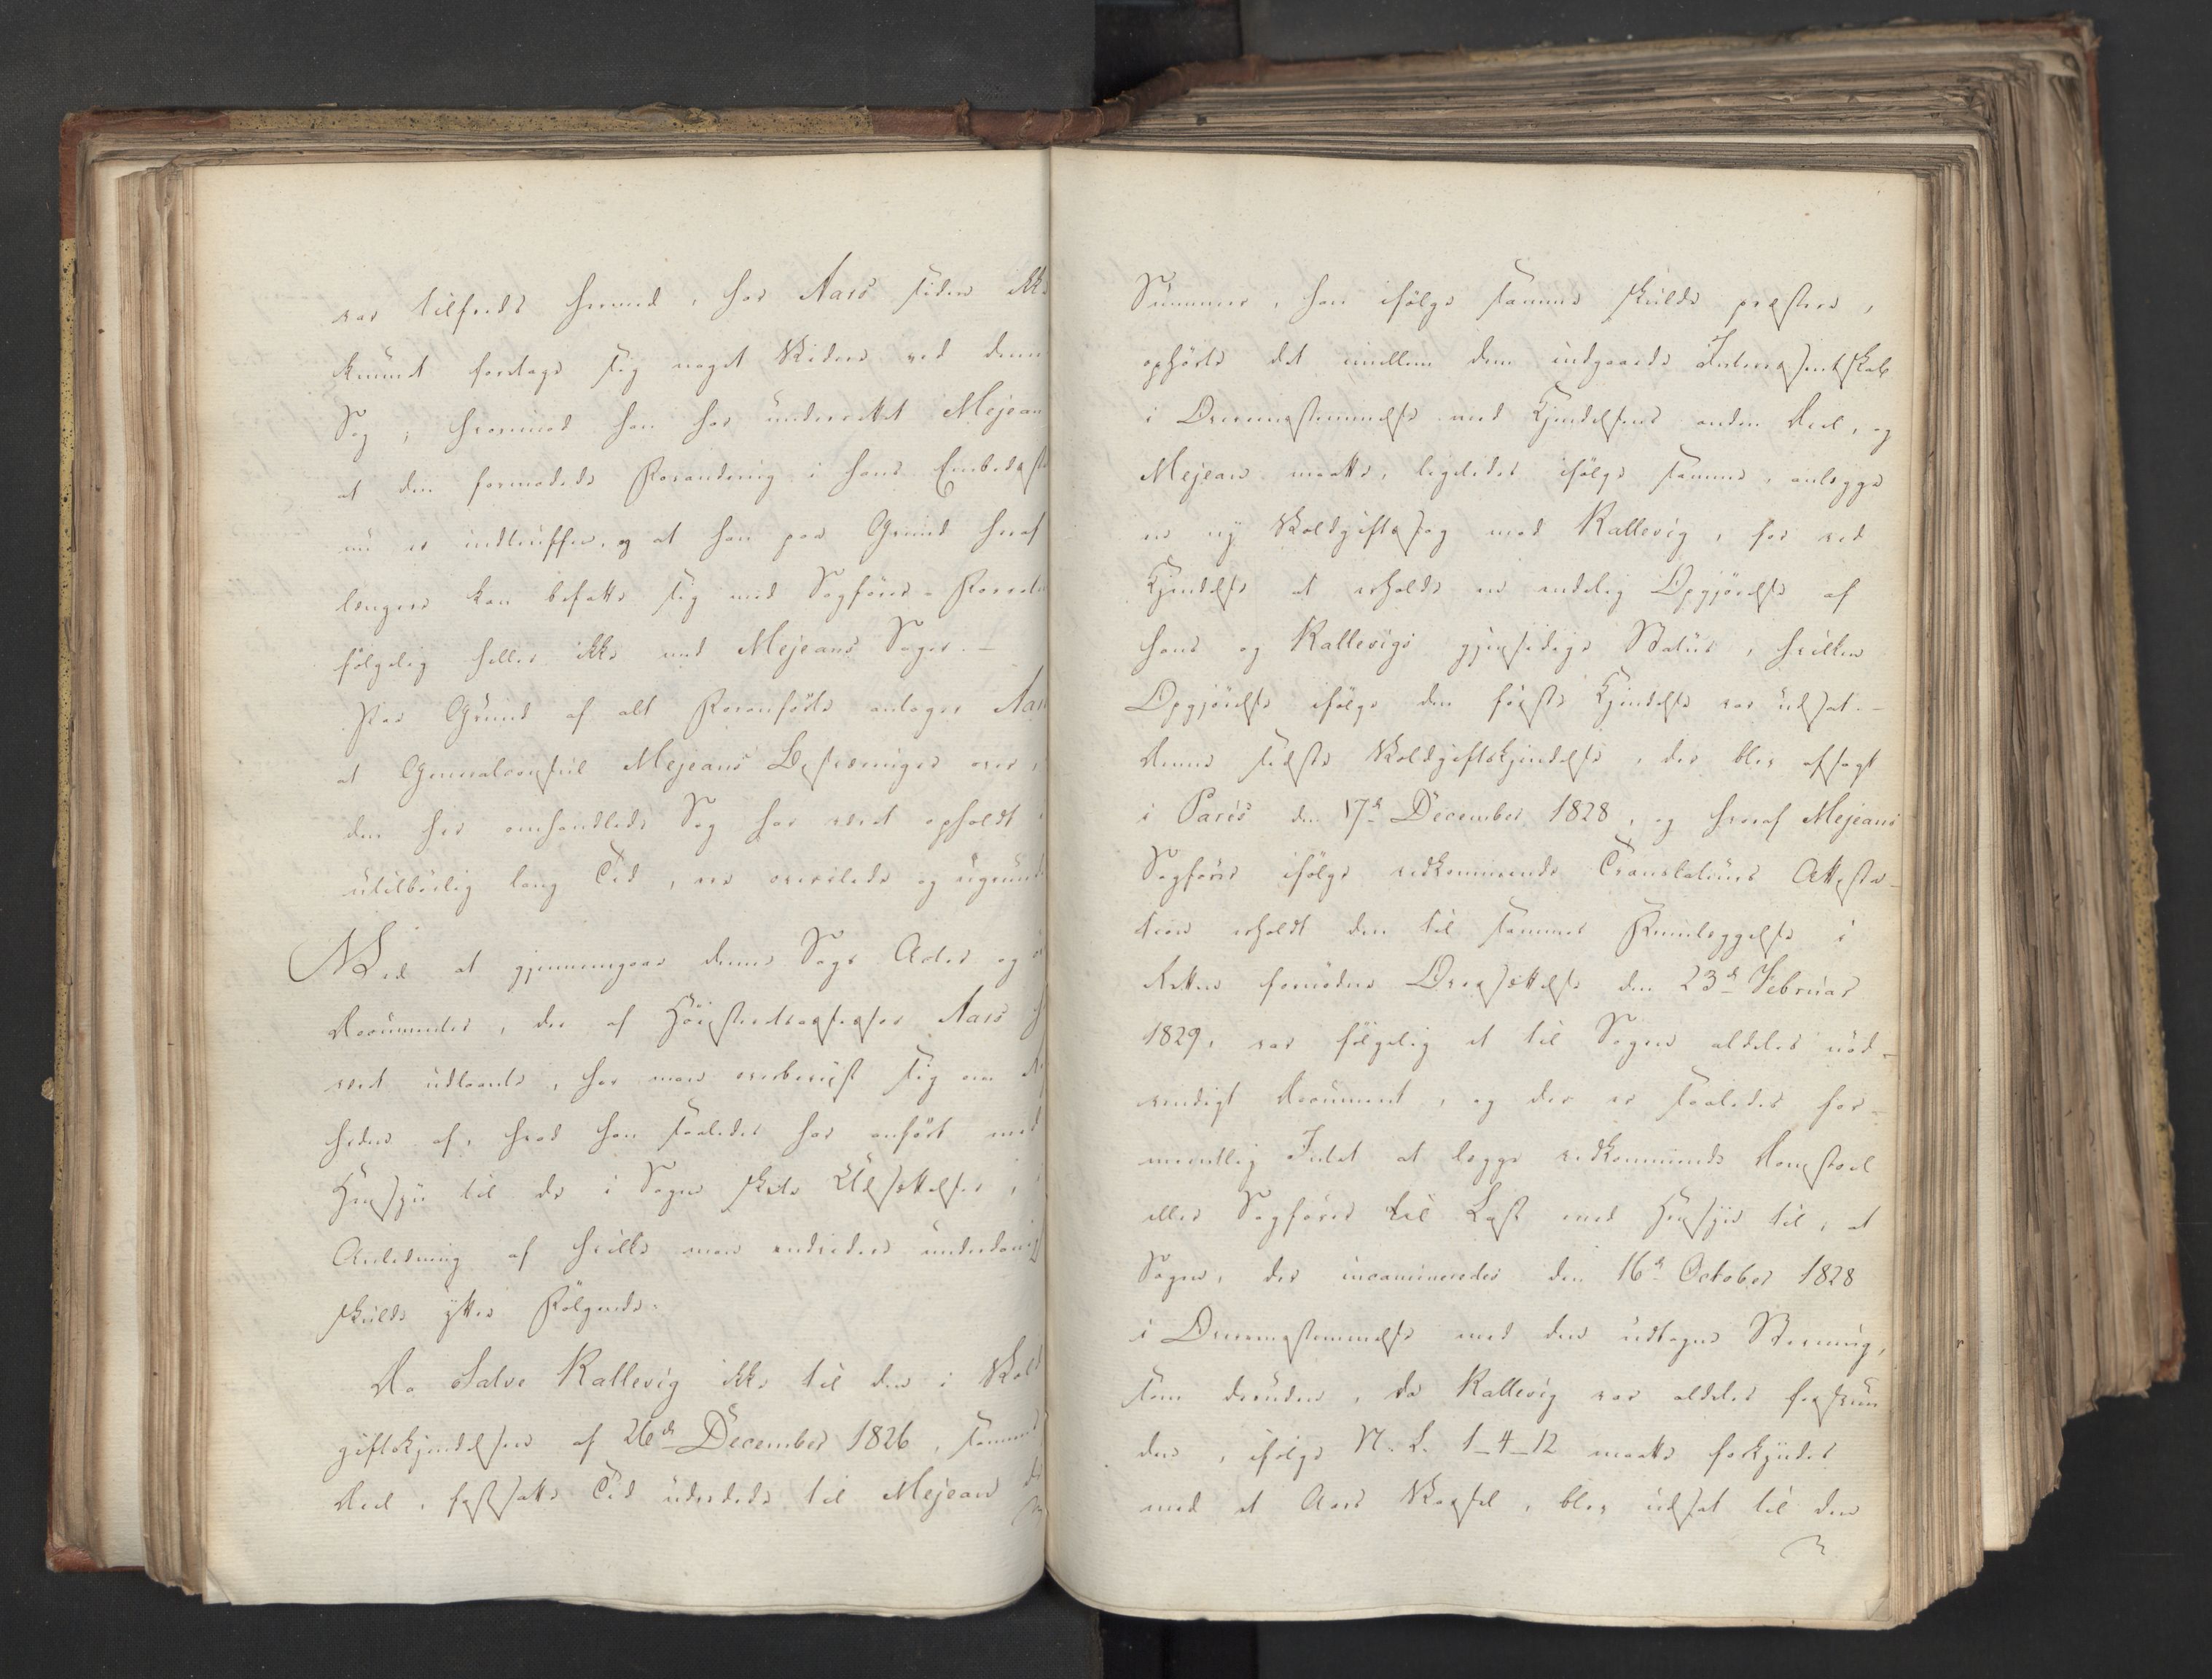 var tilfreds hermed, har Aars siden ikke
kunnet foretage sig noget Videre ved denne
Sag; hvorimod han har underrettet Mejean
at den formodede Forandring i hans Embeds
nu er indtruffen, og at han paa Grund heraf
længere kan befatte sig med Sagfører-Forret
følgelig heller ikke med Mejeans Sager. –
Paa Grund af alt Foranførte antager Aars
at Generalconsul Mejeans Besværinger over,
den her omhandlede Sag har været opholdt i
utilbørlig lang Tid, ere overilede og ugrund
Ved at gjennemgaae denne Sags Acter og
Documenter, der af Höiesteretsassessor Aars
været udlaante, har man overbeviist sig om
heden af, hvad han saaledes har anført med
Hensyn til de i Sagen skete Udsættelser, i
Anledning af hvilke man endvidere underdanigst
skulde yttre Følgende:
Da Salve Kallevig ikke til den i Vold
giftskjendelsen af 26de December 1826, samme
Deel, fastsatte Tid udredede til Mejean de
Summer, han ifølge samme skulde præstere,
ophørte det imellem dem indgaaede Interessentskab
i Overeensstemmelse med Kjendelsens anden Deel, og
Mejean maatte, ligeledes ifølge samme, anlægge
en ny Voldgiftssag mod Kallevig, for ved
Kjendelse at erholde en endelig Opgjørelse af
hans og Kallevigs gjensidige Status, hvilken
Opgjørelse ifølge den første Kjendelse var udsat. –
Denne sidste Voldgiftskjendelse, der blev afsagt
i Paris den 17de December 1828, og hvoraf Mejeans
Sagfører ifølge vedkommende Translateurs Attesta-
tion erholdt den til sammes Fremlæggelse i
Retten fornødne Oversættelse den 23de Februar
1829, var følgelig et til Sagen aldeles nød-
vendigt Document, og der er saaledes for-
meentlig Intet at lægge vedkommende Domstoel
eller Sagfører til Last med Hensyn til, at
Sagen, der incamineredes den 16de October 1828
i Overeensstemmelse med den udtagne Stevning,
som desuden, da Kallevig var aldeles forsvun
den, ifølge N. L. 1-4-12 maatte forkyndes
med et Aars Varsel, blev udsat til den